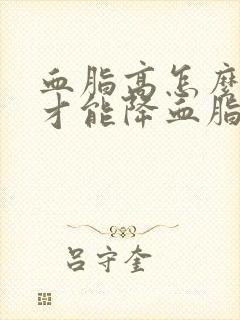 血脂高怎麼
才能降血脂
吕守奎